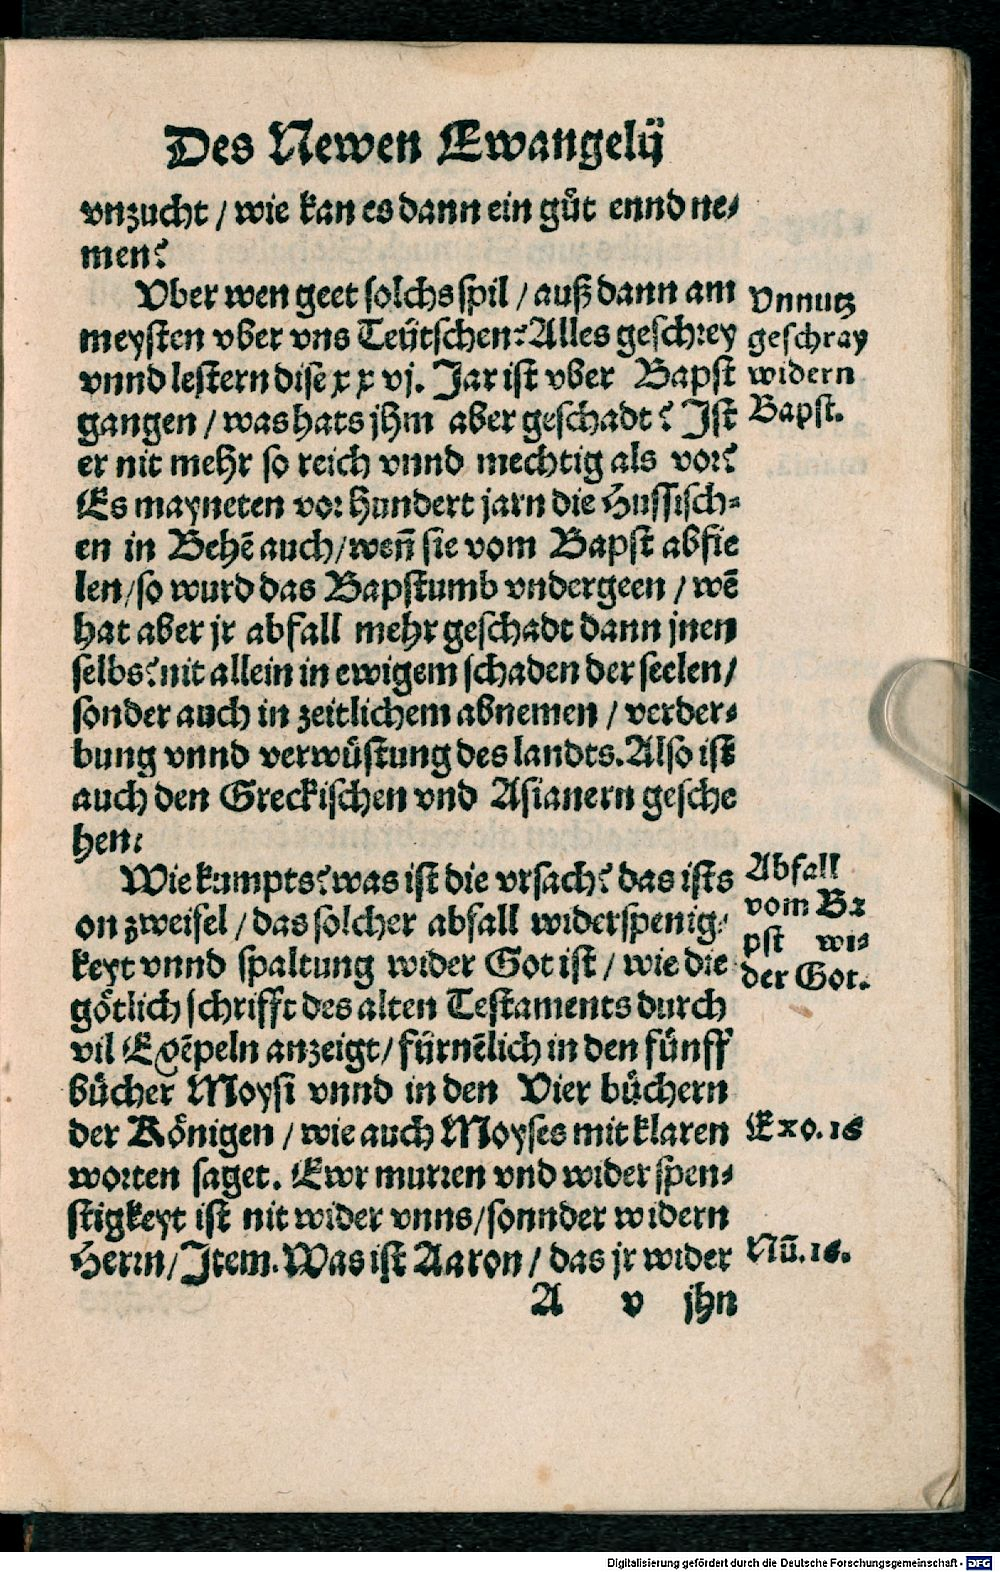 Des Newen Ewangelij
vnzucht / wie kan es dann ein gůt ennd ne-
men?
Vber wen geet solchs spil / auß dann am
meysten vber vns Teütschen? Alles geschrey
vnnd lestern dise xxvj. Jar ist vber Bapst
gangen / was hats jhm aber geschadt? Ist
er nit mehr so reich vnnd mechtig als vor?
Es mayneten vor hundert jarn die Hussisch-
en in Behē auch / weñ sie vom Bapst abfie
len / so wurd das Bapstumb vndergeen / wē
hat aber jr abfall mehr geschadt dann jnen
selbs? nit allein in ewigem schaden der seelen /
sonder auch in zeitlichem abnemen / verder-
bung vnnd verwüstung des landts. Also ist
auch den Greckischen vnd Asianern gesche
hen:
Wie kumpts? was ist die vrsach? das ists
on zweifel / das solcher abfall widerspenig-
keyt vnnd spaltung wider Got ist / wie die
götlich schrifft des alten Testaments durch
vil Exēpeln anzeigt / fürnēlich in den fünff
bücher Moysi vnnd in den Vier büchern
der Königen / wie auch Moyses mit klaren
worten saget. Ewr murren vnd widerspen-
stigkeyt ist nit wider vnns / sonnder widern
Herrn / Item. Was ist Aaron / das jr wider
A v jhn
Vnnutz
geschray
widern
Bapst.
Abfall
vom Ba
pst wi-
der Got.
Exo. 16
Nũ. 16.
Digitalisierung gefördert durch die Deutsche Forschungsgemeinschaft - DFG